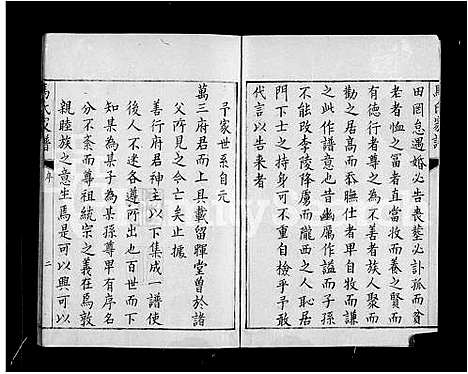 馬氏家譜
田罔怠遇婚必告喪塟必訃孤而貧
老者恤之冨者直當牧而養之賢而
有德行者尊之為不善者族人聚而
勸之居高而仕者卑自牧而謙
此作譜意也昔幽厲作謚而子孫
不能改李陵降虜而隴西之人恥居
門下士之持身可不重自檢乎予敢
代言以告来者
予家世系自元
萬三府君而上具載留輝堂曽於諸
父所見之今亡矣止據
善行府君神主以下集成一譜使
後人不迷各遵所出也百世而下
知某為某子某孫尊卑有序名
分不紊而尊祖統宗之義在焉敦
親睦族之意生焉是可以興可以
馬氏家譜
序
二